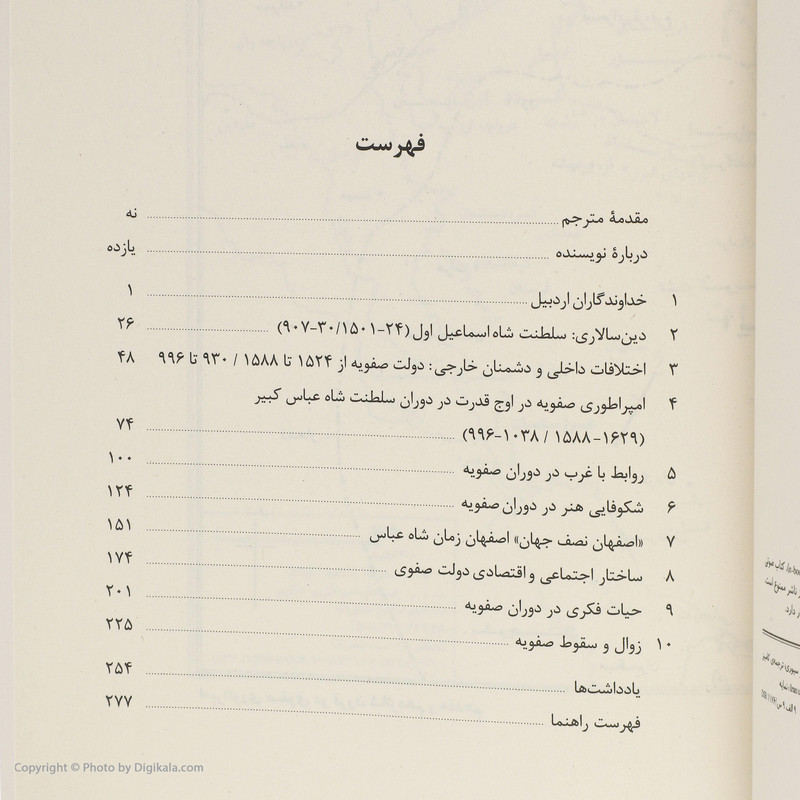 فهرست
مقدمهٔ مترجم ........ نه
دربارهٔ نویسنده ........ یازده
۱ خداوندگاران اردبیل ........ ۱
۲ دین‌سالاری: سلطنت شاه اسماعیل اول (۲۴-۱۵۰۱/۳۰-۹۰۷) ........ ۲۶
۳ اختلافات داخلی و دشمنان خارجی: دولت صفویه از ۱۵۲۴ تا ۱۵۸۸ / ۹۳۰ تا ۹۹۶ ۴۸
۴ امپراطوری صفویه در اوج قدرت در دوران سلطنت شاه عباس کبیر
(۱۶۲۹-۱۵۸۸ / ۱۰۳۸-۹۹۶) ........ ۷۴
۵ روابط با غرب در دوران صفویه ........ ۱۰۰
۶ شکوفایی هنر در دوران صفویه ........ ۱۲۴
۷ «اصفهان نصف جهان» اصفهان زمان شاه عباس ........ ۱۵۱
۸ ساختار اجتماعی و اقتصادی دولت صفوی ........ ۱۷۴
۹ حیات فکری در دوران صفویه ........ ۲۰۱
۱۰ زوال و سقوط صفویه ........ ۲۲۵
یادداشت‌ها ........ ۲۵۴
فهرست راهنما ........ ۲۷۷
Copyright © Photo by Digikala.com